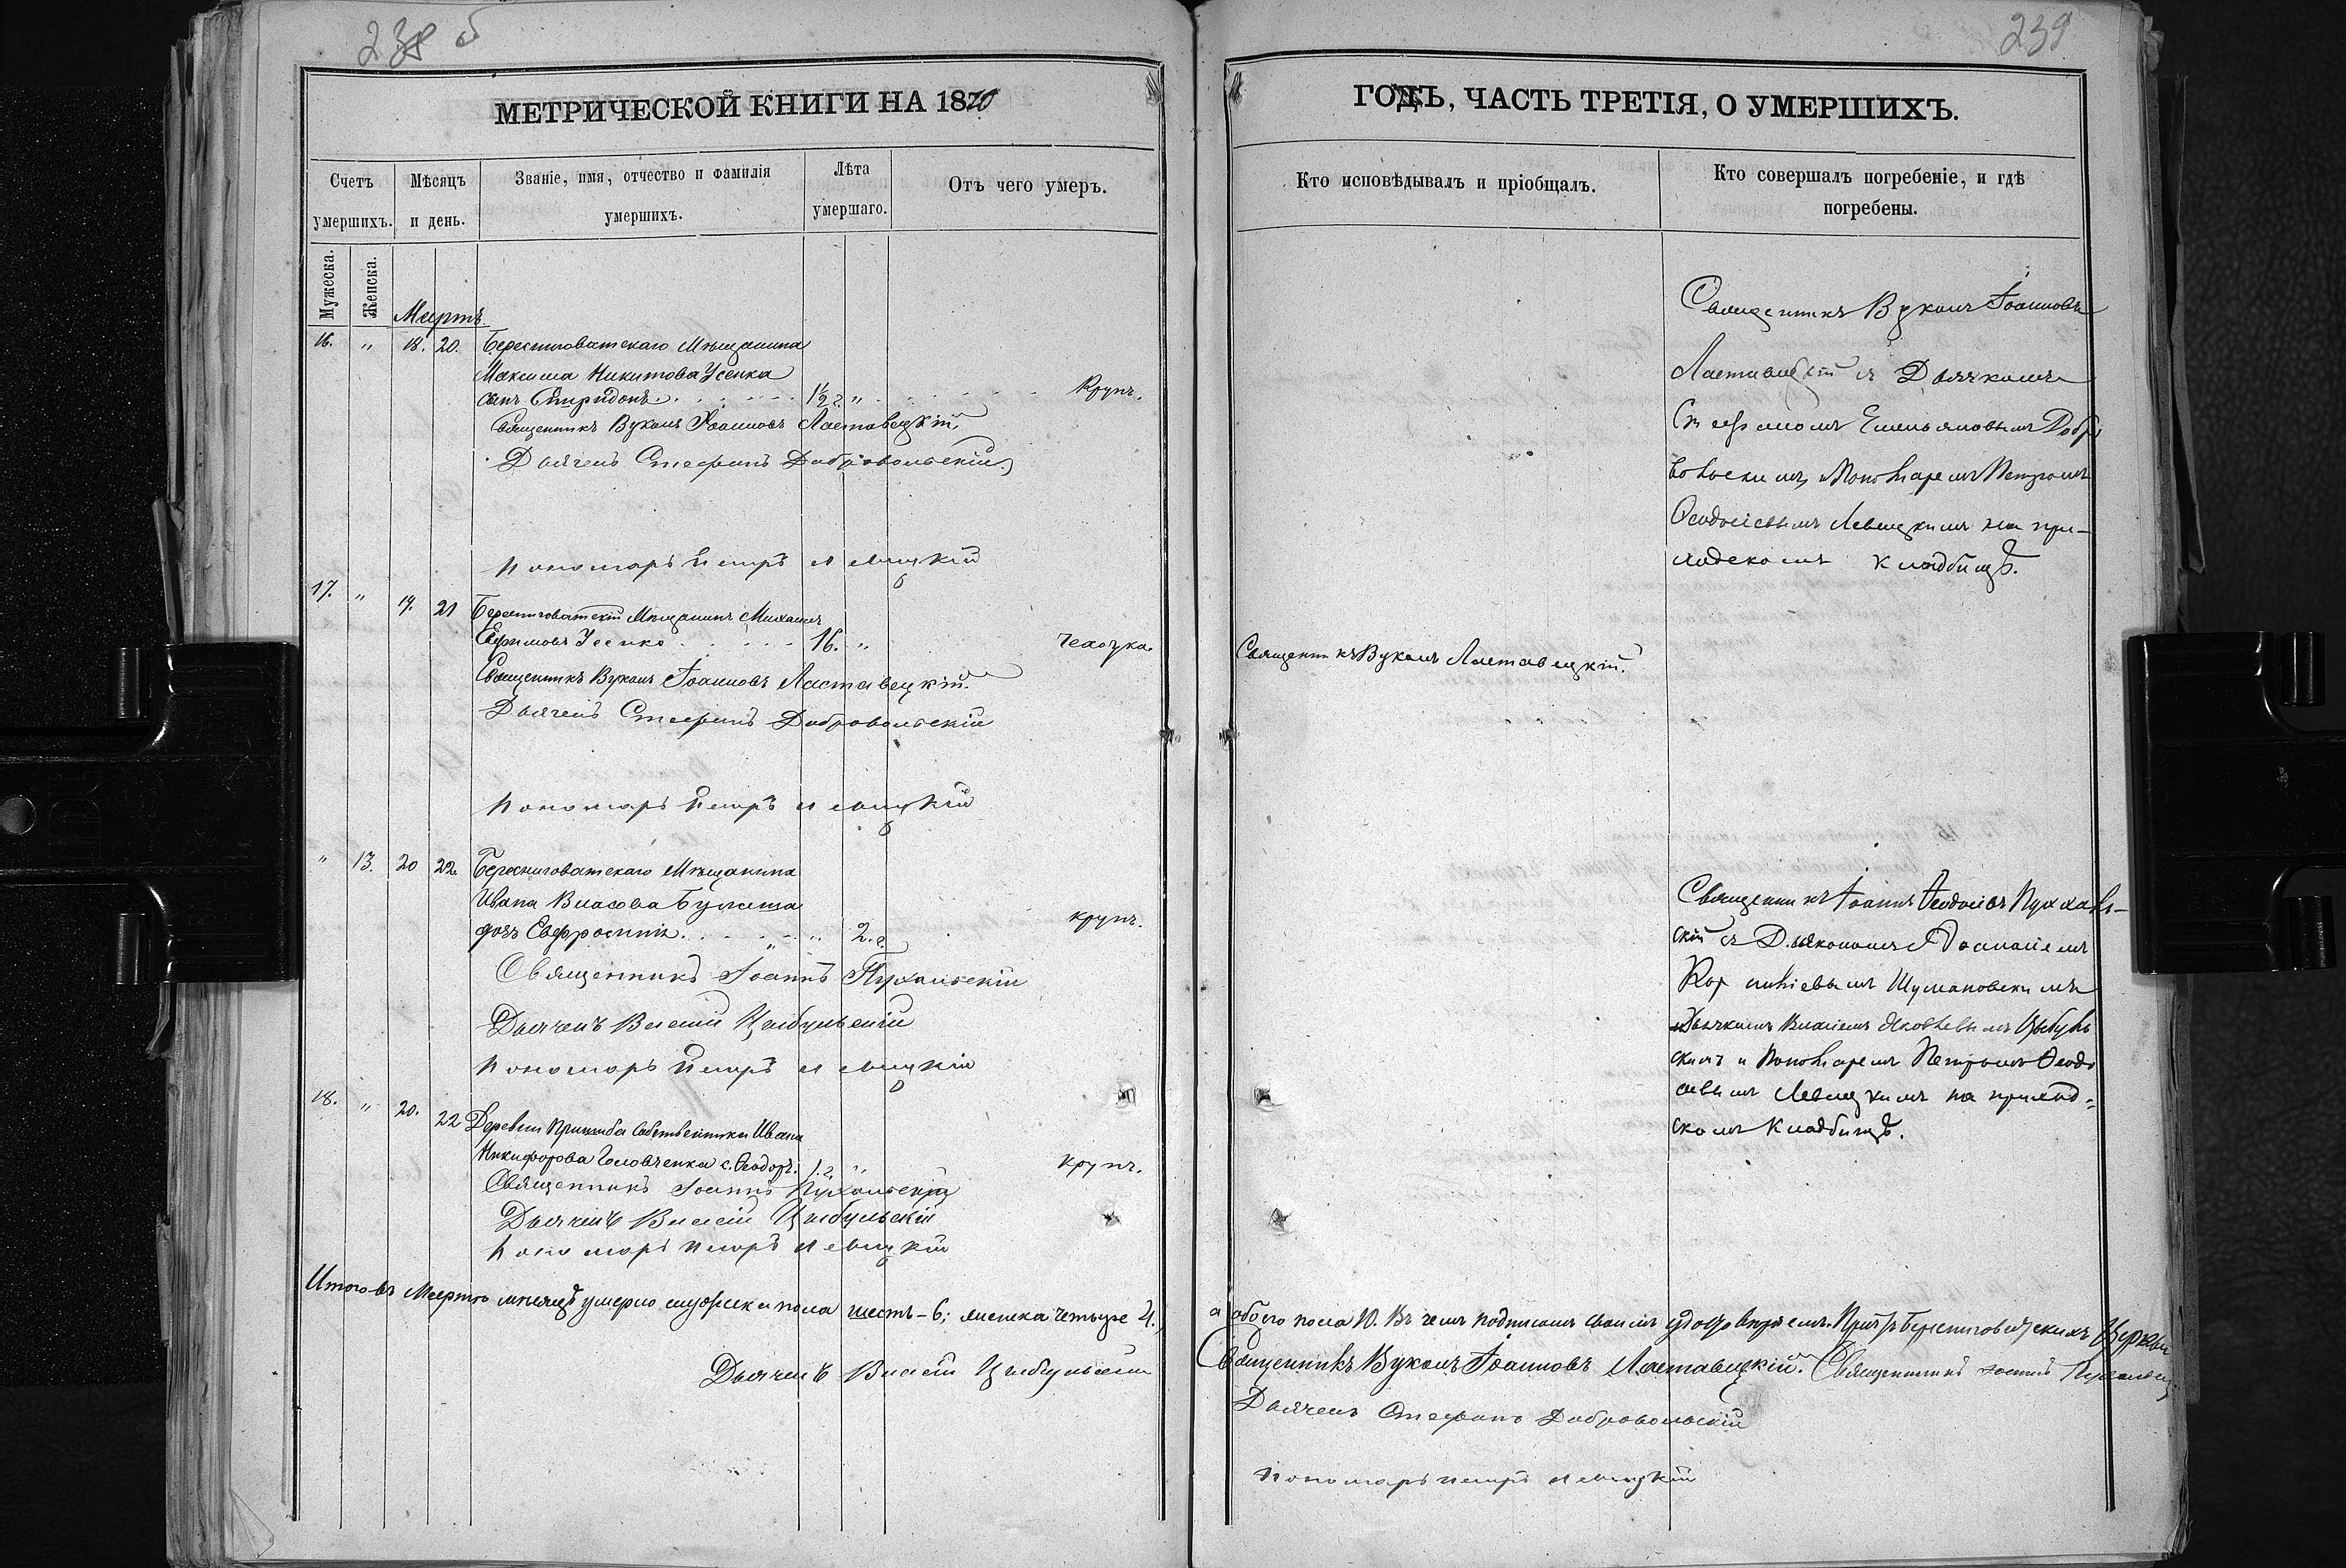 238 б
МЕТРИЧЕСКОЙ КНИГИ НА 1870
Счетъ умершихъ.
Мѣсяцъ и день.
Званіе, имя, отчество и фамилія умершихъ.
Лѣта умершаго.
Отъ чего умеръ.
Мужеска.
Женска.
Мартъ
16. " 18. 20. Берестиговатскаго Мѣщанина
Максима Никитова Усенка
сынъ Спиридонъ 1½ г. " Крупъ.
Священникъ Вуколъ Іоанновъ Ластавецкій.
Дьячекъ Стефанъ Добровольскій
Пономарь Петръ Левицкій
17. " 19. 21 Берестиговатскій Мѣщанинъ Михаилъ
Ефимовъ Усенко 16. " Чахотка
Священникъ Вуколъ Іоанновъ Ластавецкій.
Дьячекъ Стефанъ Добровольскій
Пономарь Петръ Левицкій
" 13. 20 22. Берестиговатскаго Мѣщанина
Ивана Власова
дочь Евфросинія " 2. г. крупъ.
Священникъ Іоаннъ Пухальскій
Дьячекъ Власій Цыбульскій
Пономарь Петръ Левицкій
18. " 20. 22 Деревни Пришиба собственника Ивана
Никифорова Головченка с. Ѳеодоръ. 1. г. " крупъ.
Священникъ Іоаннъ Пухальскій
Дьячекъ Власій Цыбульскій
Пономарь Петръ Левицкій
Итого въ Мартѣ мѣсяцѣ умерло мужеска пола шесть – 6; женска четыре 4.,
Дьячекъ Власій Цыбульскій
239
ГОДЪ, ЧАСТЬ ТРЕТІЯ, О УМЕРШИХЪ.
Кто исповѣдывалъ и пріобщалъ.
Кто совершалъ погребеніе, и гдѣ погребены.
Священникъ Вуколъ Іоанновъ
Ластавецкій съ Дьячкомъ
Стефаномъ Емельяновымъ Добро
вольскимъ, Пономаремъ Петромъ
Ѳеодосіевымъ Левицкимъ на при-
ходскомъ кладбищѣ.
Священникъ Вуколъ Ластавецкій.
Священникъ Іоаннъ Ѳеодосіевъ Пухаль-
скій съ Дьякономъ Аѳанасіемъ
Шумановскимъ
Дьячкомъ Власіемъ Яковлевымъ Цыбуль
скимъ и Пономаремъ Петромъ Ѳеодо
сіевымъ Левицкимъ на приход=
скомъ Кладбищѣ.
а обоего пола 10. Въ чемъ подписомъ своимъ удостовѣряемъ. Причтъ Берестиговатскихъ Церквей
Священникъ Вуколъ Іоанновъ Ластавецкій. Священникъ Іоаннъ Пухальскій
Дьячекъ Стефанъ Добровольскій
Пономарь Петръ Левицкій